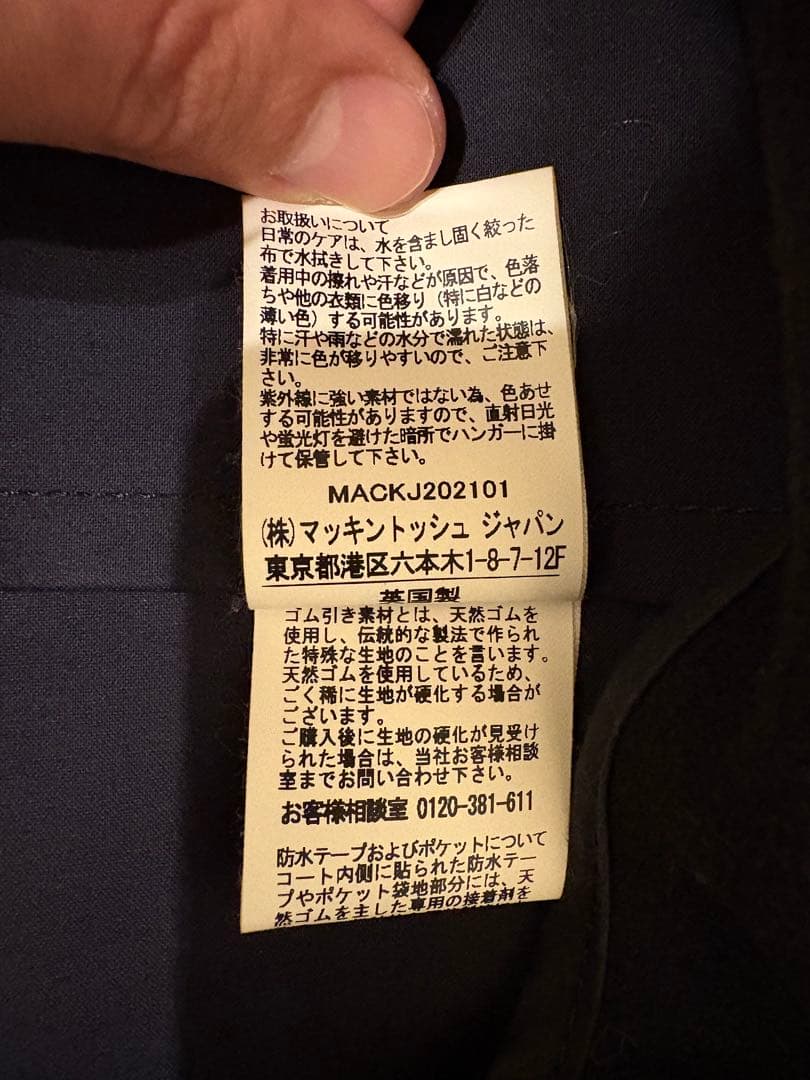 お取扱いについて
日常のケアは、水を含まし固く絞った
布で水拭きして下さい。
着用中の擦れや汗などが原因で、色落
ちや他の衣類に色移り（特に白などの
薄い色）する可能性があります。
特に汗や雨などの水分で濡れた状態は、
非常に色が移りやすいので、ご注意下
さい。
紫外線に強い素材ではない為、色あせ
する可能性がありますので、直射日光
や蛍光灯を避けた暗所でハンガーに掛
けて保管して下さい。
MACKJ202101
(株)マッキントッシュ ジャパン
東京都港区六本木1-8-7-12F
英国製
ゴム引き素材とは、天然ゴムを
使用し、伝統的な製法で作られ
た特殊な生地のことを言います。
天然ゴムを使用しているため、
ごく稀に生地が硬化する場合が
ございます。
ご購入後に生地の硬化が見受け
られた場合は、当社お客様相談
室までお問い合わせ下さい。
お客様相談室 0120-381-611
防水テープおよびポケットについて
コート内側に貼られた防水テー
プやポケット袋地部分には、天
然ゴムを主した専用の接着剤を